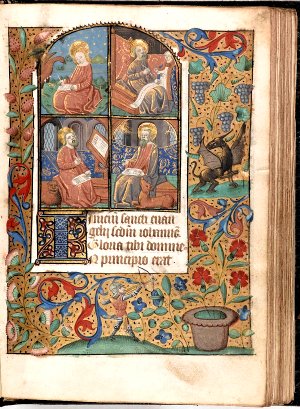 Inicium sancti euan
gelii secdm iohannē
Gloria tibi domine
N principio erat